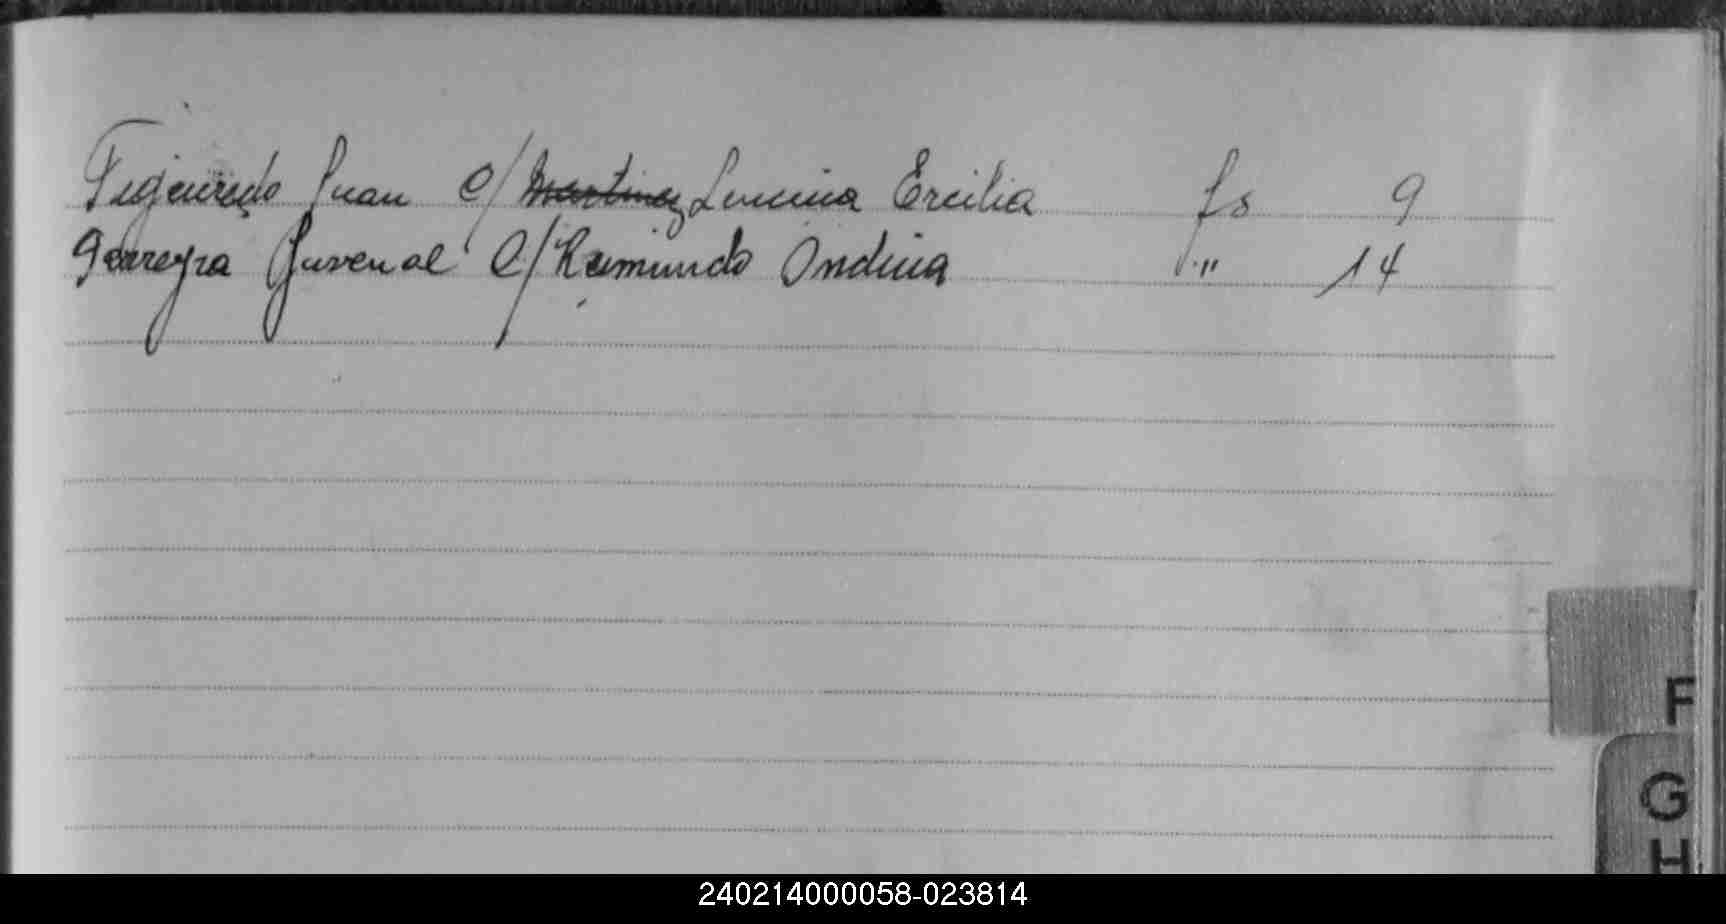 Figueredo Juan C/ Martinez Lucina Ercilia fs 9
Ferreyra Juvenal C/ Raimundo Ondina " " 14
F
G
H
240214000058-023814